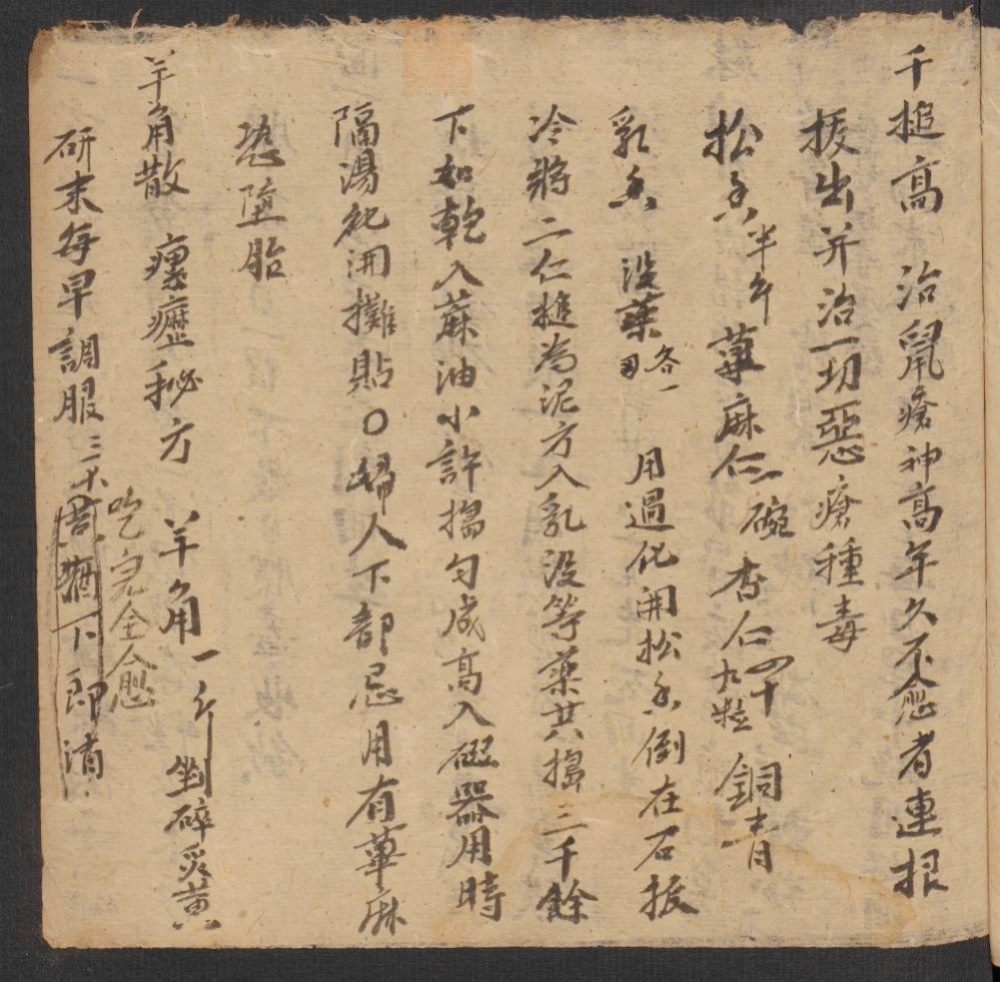 千槌高　治鼠瘡神高年久不愈者連根
拔出并治一切惡瘡種毒
松香半斤　萆麻仁一碗　杏仁四十九粒　銅青
乳香　沒藥各一　用過化開松香倒在石板
冷將二仁槌為泥方入乳沒等藥共搗三千餘
下如乾入蔴油小許搗勻成高入磁器用時
隔湯化開攤貼〇婦人下部忌用有萆麻
恐墮胎
羊角散　瘰癧秘方　羊角一斤　剉碎炙黃
研末每早調服三禾酒下即消
吃完全愈